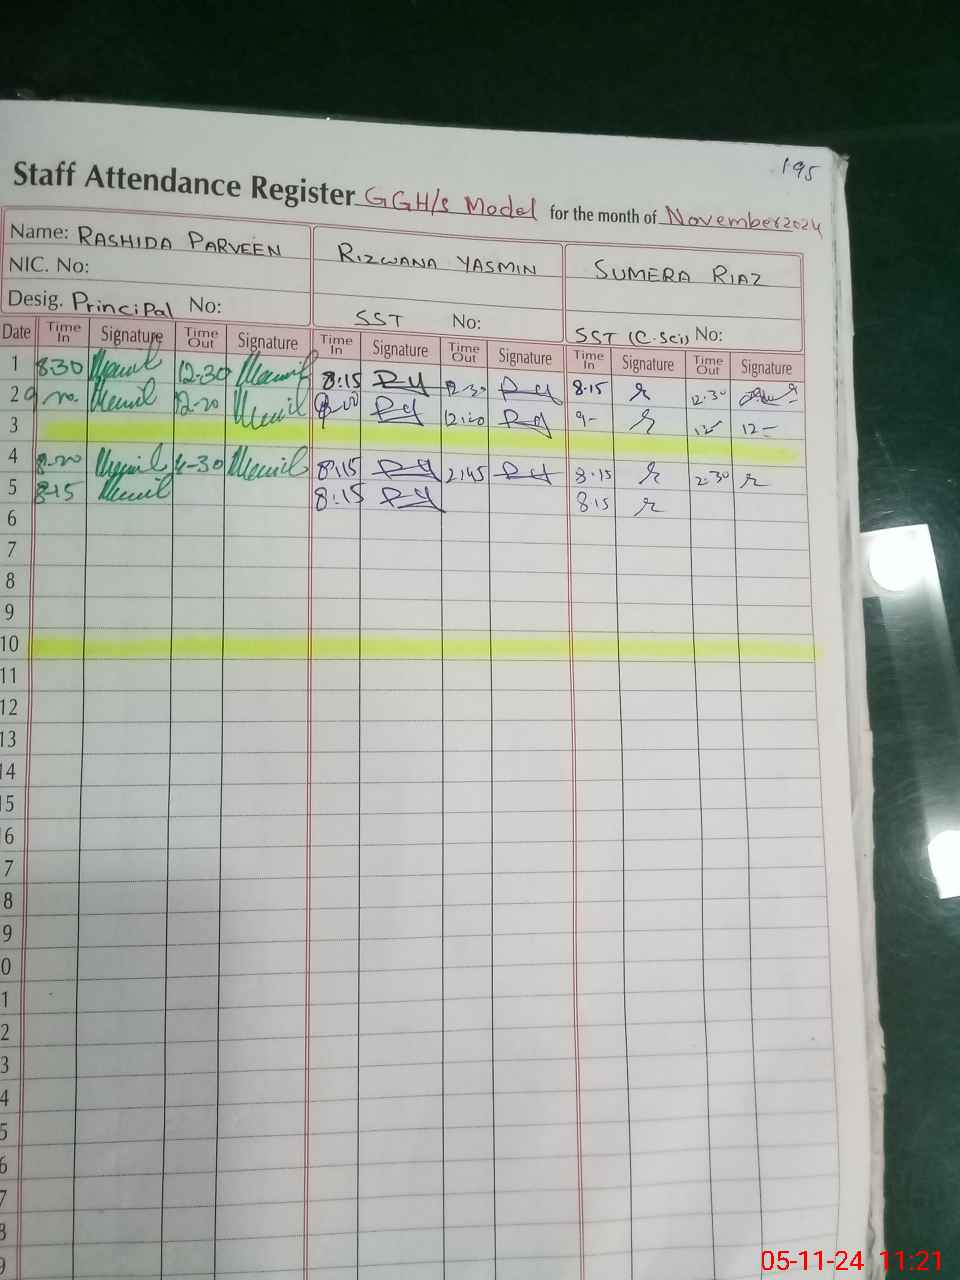 195
Staff Attendance Register GGH/s Model for the month of November 2024
Name: RASHIDA PARVEEN RIZWANA YASMIN SUMERA RIAZ
NIC. No:
Desig. Principal No: SST No: SST (C.Sci) No:
Date Time In Signature Time Out Signature Time In Signature Time Out Signature Time In Signature Time Out Signature
1 8-30 12-30 8:15 12:30 8.15 12.30
2 12-20 12:20 9-
3 12 12-
4 8-20 4-30 8:15 2:45 8.15 2.30
5 8-15 8:15 8.15
6
7
8
9
10
11
12
13
14
15
6
7
8
9
0
1
2
3
4
5
6
7
8
9
05-11-24 11:21